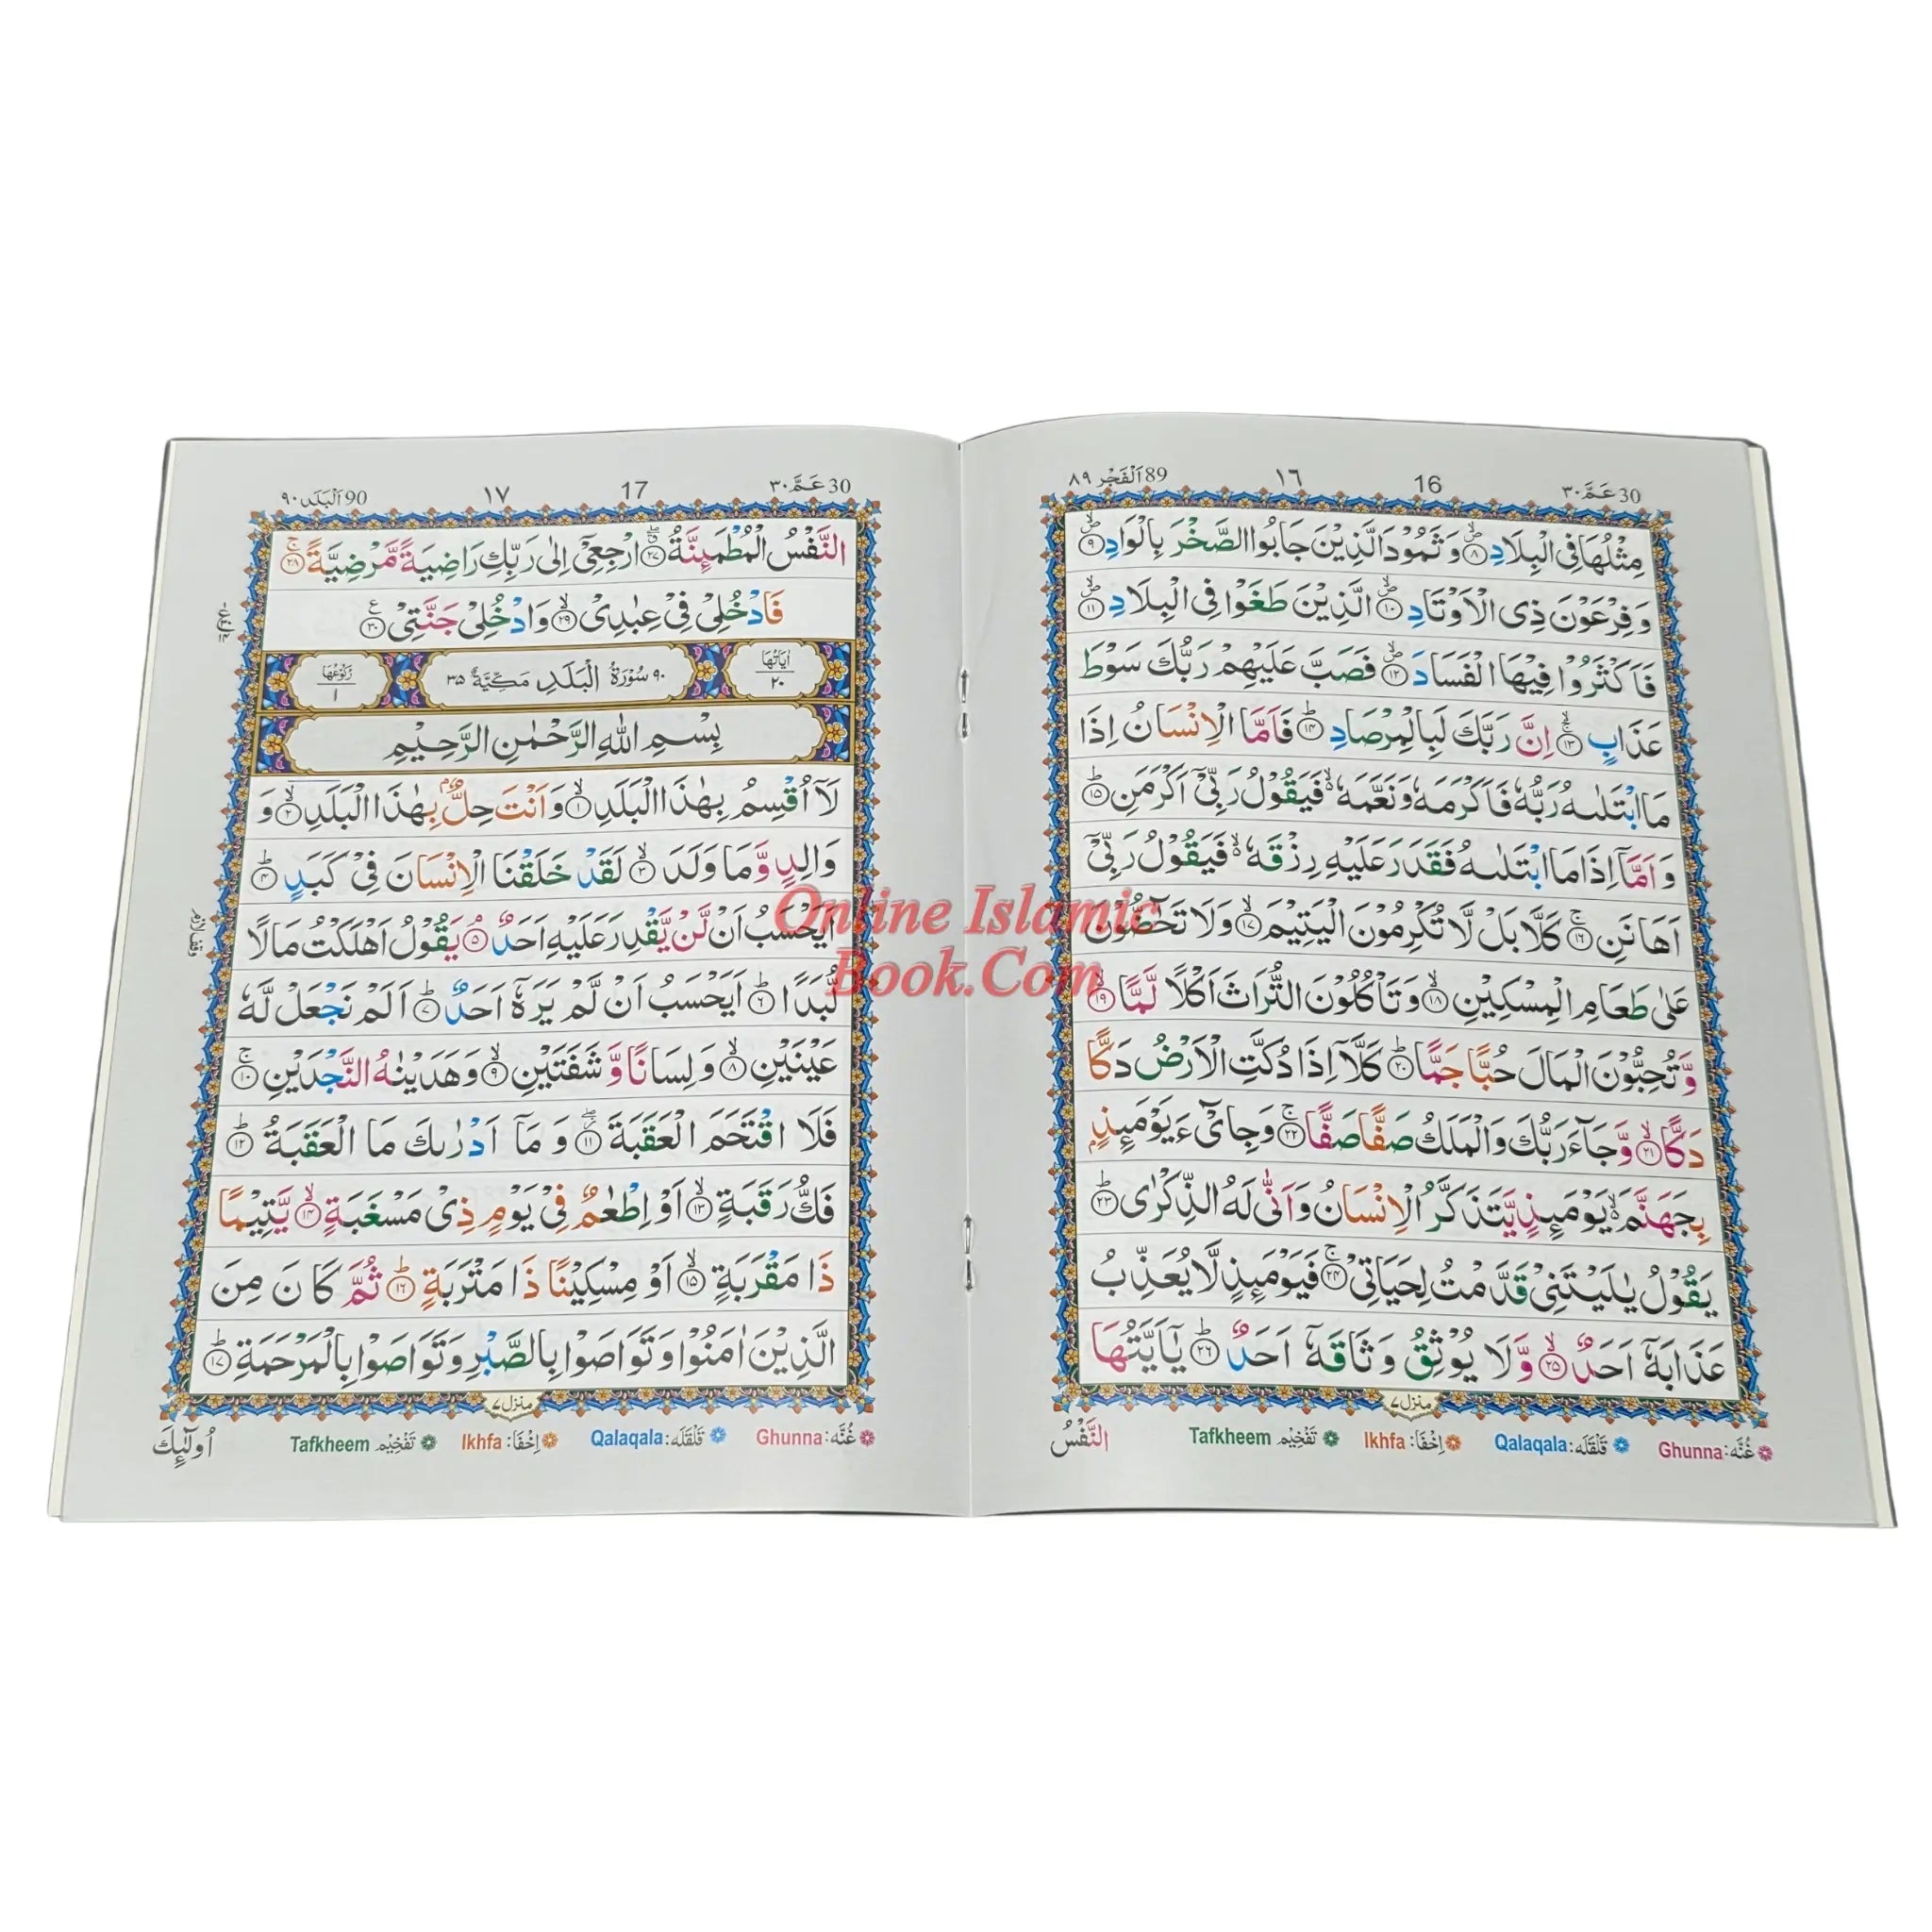 30 عَمَّ ٣٠
16
١٦
89 اَلْفَجْر ٨٩
مِثْلُهَا فِى الْبِلَادِ ۪ۙ ۝٨ وَ ثَمُوْدَ الَّذِيْنَ جَابُوا الصَّخْرَ بِالْوَادِ ۪ۙ ۝٩
وَ فِرْعَوْنَ ذِى الْاَوْتَادِ ۪ۙ ۝١٠ الَّذِيْنَ طَغَوْا فِى الْبِلَادِ ۪ۙ ۝١١
فَاَكْثَرُوْا فِيْهَا الْفَسَادَ ۪ۙ ۝١٢ فَصَبَّ عَلَيْهِمْ رَبُّكَ سَوْطَ
عَذَابٍ ۚۙ ۝١٣ اِنَّ رَبَّكَ لَبِالْمِرْصَادِ ؕ ۝١٤ فَاَمَّا الْاِنْسَانُ اِذَا
مَا ابْتَلٰىهُ رَبُّهٗ فَاَكْرَمَهٗ وَ نَعَّمَهٗ ۙ۬ فَيَقُوْلُ رَبِّىْۤ اَكْرَمَنِ ؕ ۝١٥
وَ اَمَّاۤ اِذَا مَا ابْتَلٰىهُ فَقَدَرَ عَلَيْهِ رِزْقَهٗ ۙ۬ فَيَقُوْلُ رَبِّىْۤ
اَهَانَنِ ۚ ۝١٦ كَلَّا بَلْ لَّا تُكْرِمُوْنَ الْيَتِيْمَ ۙ ۝١٧ وَلَا تَحٰٓضُّوْنَ
عَلٰى طَعَامِ الْمِسْكِيْنِ ۙ ۝١٨ وَ تَاْكُلُوْنَ التُّرَاثَ اَكْلًا لَّمًّا ۙ ۝١٩
وَّ تُحِبُّوْنَ الْمَالَ حُبًّا جَمًّا ؕ ۝٢٠ كَلَّاۤ اِذَا دُكَّتِ الْاَرْضُ دَكًّا
دَكًّا ۙ ۝٢١ وَّ جَآءَ رَبُّكَ وَالْمَلَكُ صَفًّا صَفًّا ۚ ۝٢٢ وَجِاىْٓءَ يَوْمَئِذٍۭ
بِجَهَنَّمَ ۙ۬ يَوْمَئِذٍ يَّتَذَكَّرُ الْاِنْسَانُ وَ اَنّٰى لَهُ الذِّكْرٰى ؕ ۝٢٣
يَقُوْلُ يٰلَيْتَنِىْ قَدَّمْتُ لِحَيَاتِىْ ۚ ۝٢٤ فَيَوْمَئِذٍ لَّا يُعَذِّبُ
عَذَابَهٗۤ اَحَدٌ ۙ ۝٢٥ وَّلَا يُوْثِقُ وَ ثَاقَهٗۤ اَحَدٌ ؕ ۝٢٦ يٰۤاَيَّتُهَا
منزل ٧
Ghunna: غُنَّه
Qalaqala: قَلْقَلَه
Ikhfa: اِخْفَا
Tafkheem تَفْخِيْم
النَّفْسُ
30 عَمَّ ٣٠
17
١٧
90 اَلْبَلَد ٩٠
النَّفْسُ الْمُطْمَئِنَّةُ ۝٢٧ ارْجِعِىْۤ اِلٰى رَبِّكِ رَاضِيَةً مَّرْضِيَّةً ۚ ۝٢٨
فَادْخُلِىْ فِىْ عِبٰدِىْ ۙ ۝٢٩ وَادْخُلِىْ جَنَّتِىْ ۝٣٠
اٰيَاتُهَا ٢٠
٩٠ سُوْرَةُ الْبَلَدِ مَكِّيَّةٌ ٣٥
رُكُوْعُهَا ١
بِسْمِ اللّٰهِ الرَّحْمٰنِ الرَّحِيْمِ
لَاۤ اُقْسِمُ بِهٰذَا الْبَلَدِ ۙ ۝١ وَ اَنْتَ حِلٌّۢ بِهٰذَا الْبَلَدِ ۙ ۝٢ وَ
وَالِدٍ وَّ مَا وَلَدَ ۙ ۝٣ لَقَدْ خَلَقْنَا الْاِنْسَانَ فِىْ كَبَدٍ ؕ ۝٤
اَيَحْسَبُ اَنْ لَّنْ يَّقْدِرَ عَلَيْهِ اَحَدٌ ۘ ۝٥ يَقُوْلُ اَهْلَكْتُ مَالًا
لُّبَدًا ؕ ۝٦ اَيَحْسَبُ اَنْ لَّمْ يَرَهٗۤ اَحَدٌ ؕ ۝٧ اَلَمْ نَجْعَلْ لَّهٗ
عَيْنَيْنِ ۙ ۝٨ وَ لِسَانًا وَّ شَفَتَيْنِ ۙ ۝٩ وَ هَدَيْنٰهُ النَّجْدَيْنِ ۚ ۝١٠
فَلَا اقْتَحَمَ الْعَقَبَةَ ۝١١ وَ مَاۤ اَدْرٰىكَ مَا الْعَقَبَةُ ؕ ۝١٢
فَكُّ رَقَبَةٍ ۙ ۝١٣ اَوْ اِطْعٰمٌ فِىْ يَوْمٍ ذِىْ مَسْغَبَةٍ ۙ ۝١٤ يَّتِيْمًا
ذَا مَقْرَبَةٍ ۙ ۝١٥ اَوْ مِسْكِيْنًا ذَا مَتْرَبَةٍ ؕ ۝١٦ ثُمَّ كَانَ مِنَ
الَّذِيْنَ اٰمَنُوْا وَ تَوَاصَوْا بِالصَّبْرِ وَ تَوَاصَوْا بِالْمَرْحَمَةِ ؕ ۝١٧
منزل ٧
Ghunna: غُنَّه
Qalaqala: قَلْقَلَه
Ikhfa: اِخْفَا
Tafkheem تَفْخِيْم
اُولٰٓئِكَ
Online Islamic
Book.Com